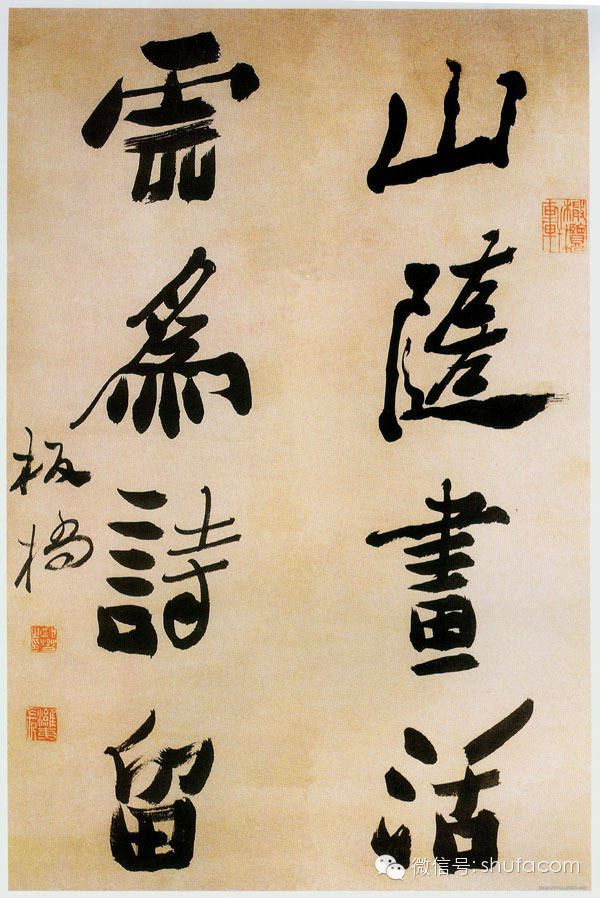 山隨畫活
雲爲詩留
板橋
微信号: shufacom